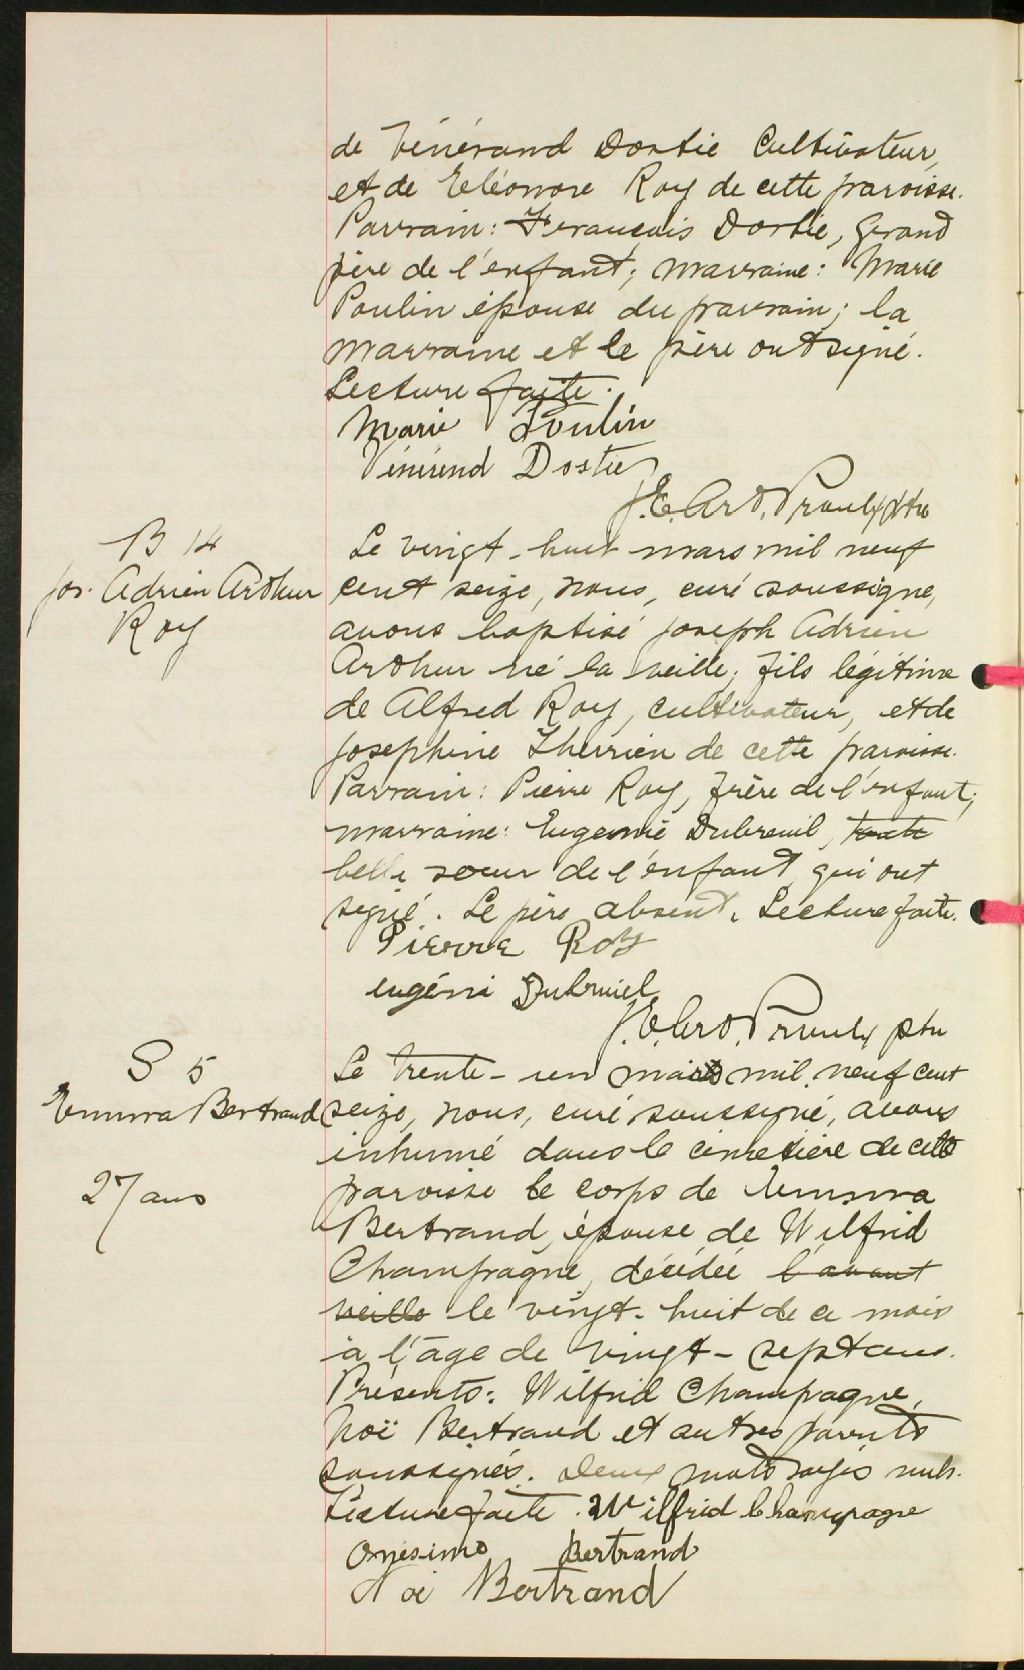 de Vénérand Dostie Cultivateur,
et de Eléonore Roy de cette paroisse.
Parrain: François Dostie, Grand
père de l'enfant; marraine: Marie
Poulin épouse du parrain; la
marraine et le père ont signé.
Lecture faite.
Marie Poulin
Vénérend Dostie
J.E. Art. Proulx ptre
B 14
Jos. Adrien Arthur
Roy
Le vingt-huit mars mil neuf
cent seize, nous, curé soussigné,
avons baptisé Joseph Adrien
Arthur né la veille, fils légitime
de Alfred Roy, cultivateur, et de
Josephine Therrien de cette paroisse.
Parrain: Pierre Roy, frère de l'enfant;
marraine: Eugenie Dubreuil, tante
belle soeur de l'enfant qui ont
signé. Le père absent. Lecture faite.
Pierre Roy
eugéni Dubruiel
J.E. Art. Proulx ptre
S 5
Emma Bertrand
27 ans
Le trente-un mars mil neuf cent
seize, nous, curé soussigné, avons
inhumé dans le cimetière de cette
paroisse le corps de Emma
Bertrand, épouse de Wilfrid
Champagne, décédée l'avant
veille le vingt-huit de ce mois
à l'âge de vingt-sept ans.
Présents: Wilfrid Champagne,
Noë Bertrand et autres parents
soussignés. Deux mots rayés nuls.
Lecture faite. Wilfrid Champagne
Onesime Bertrand
Noë Bertrand